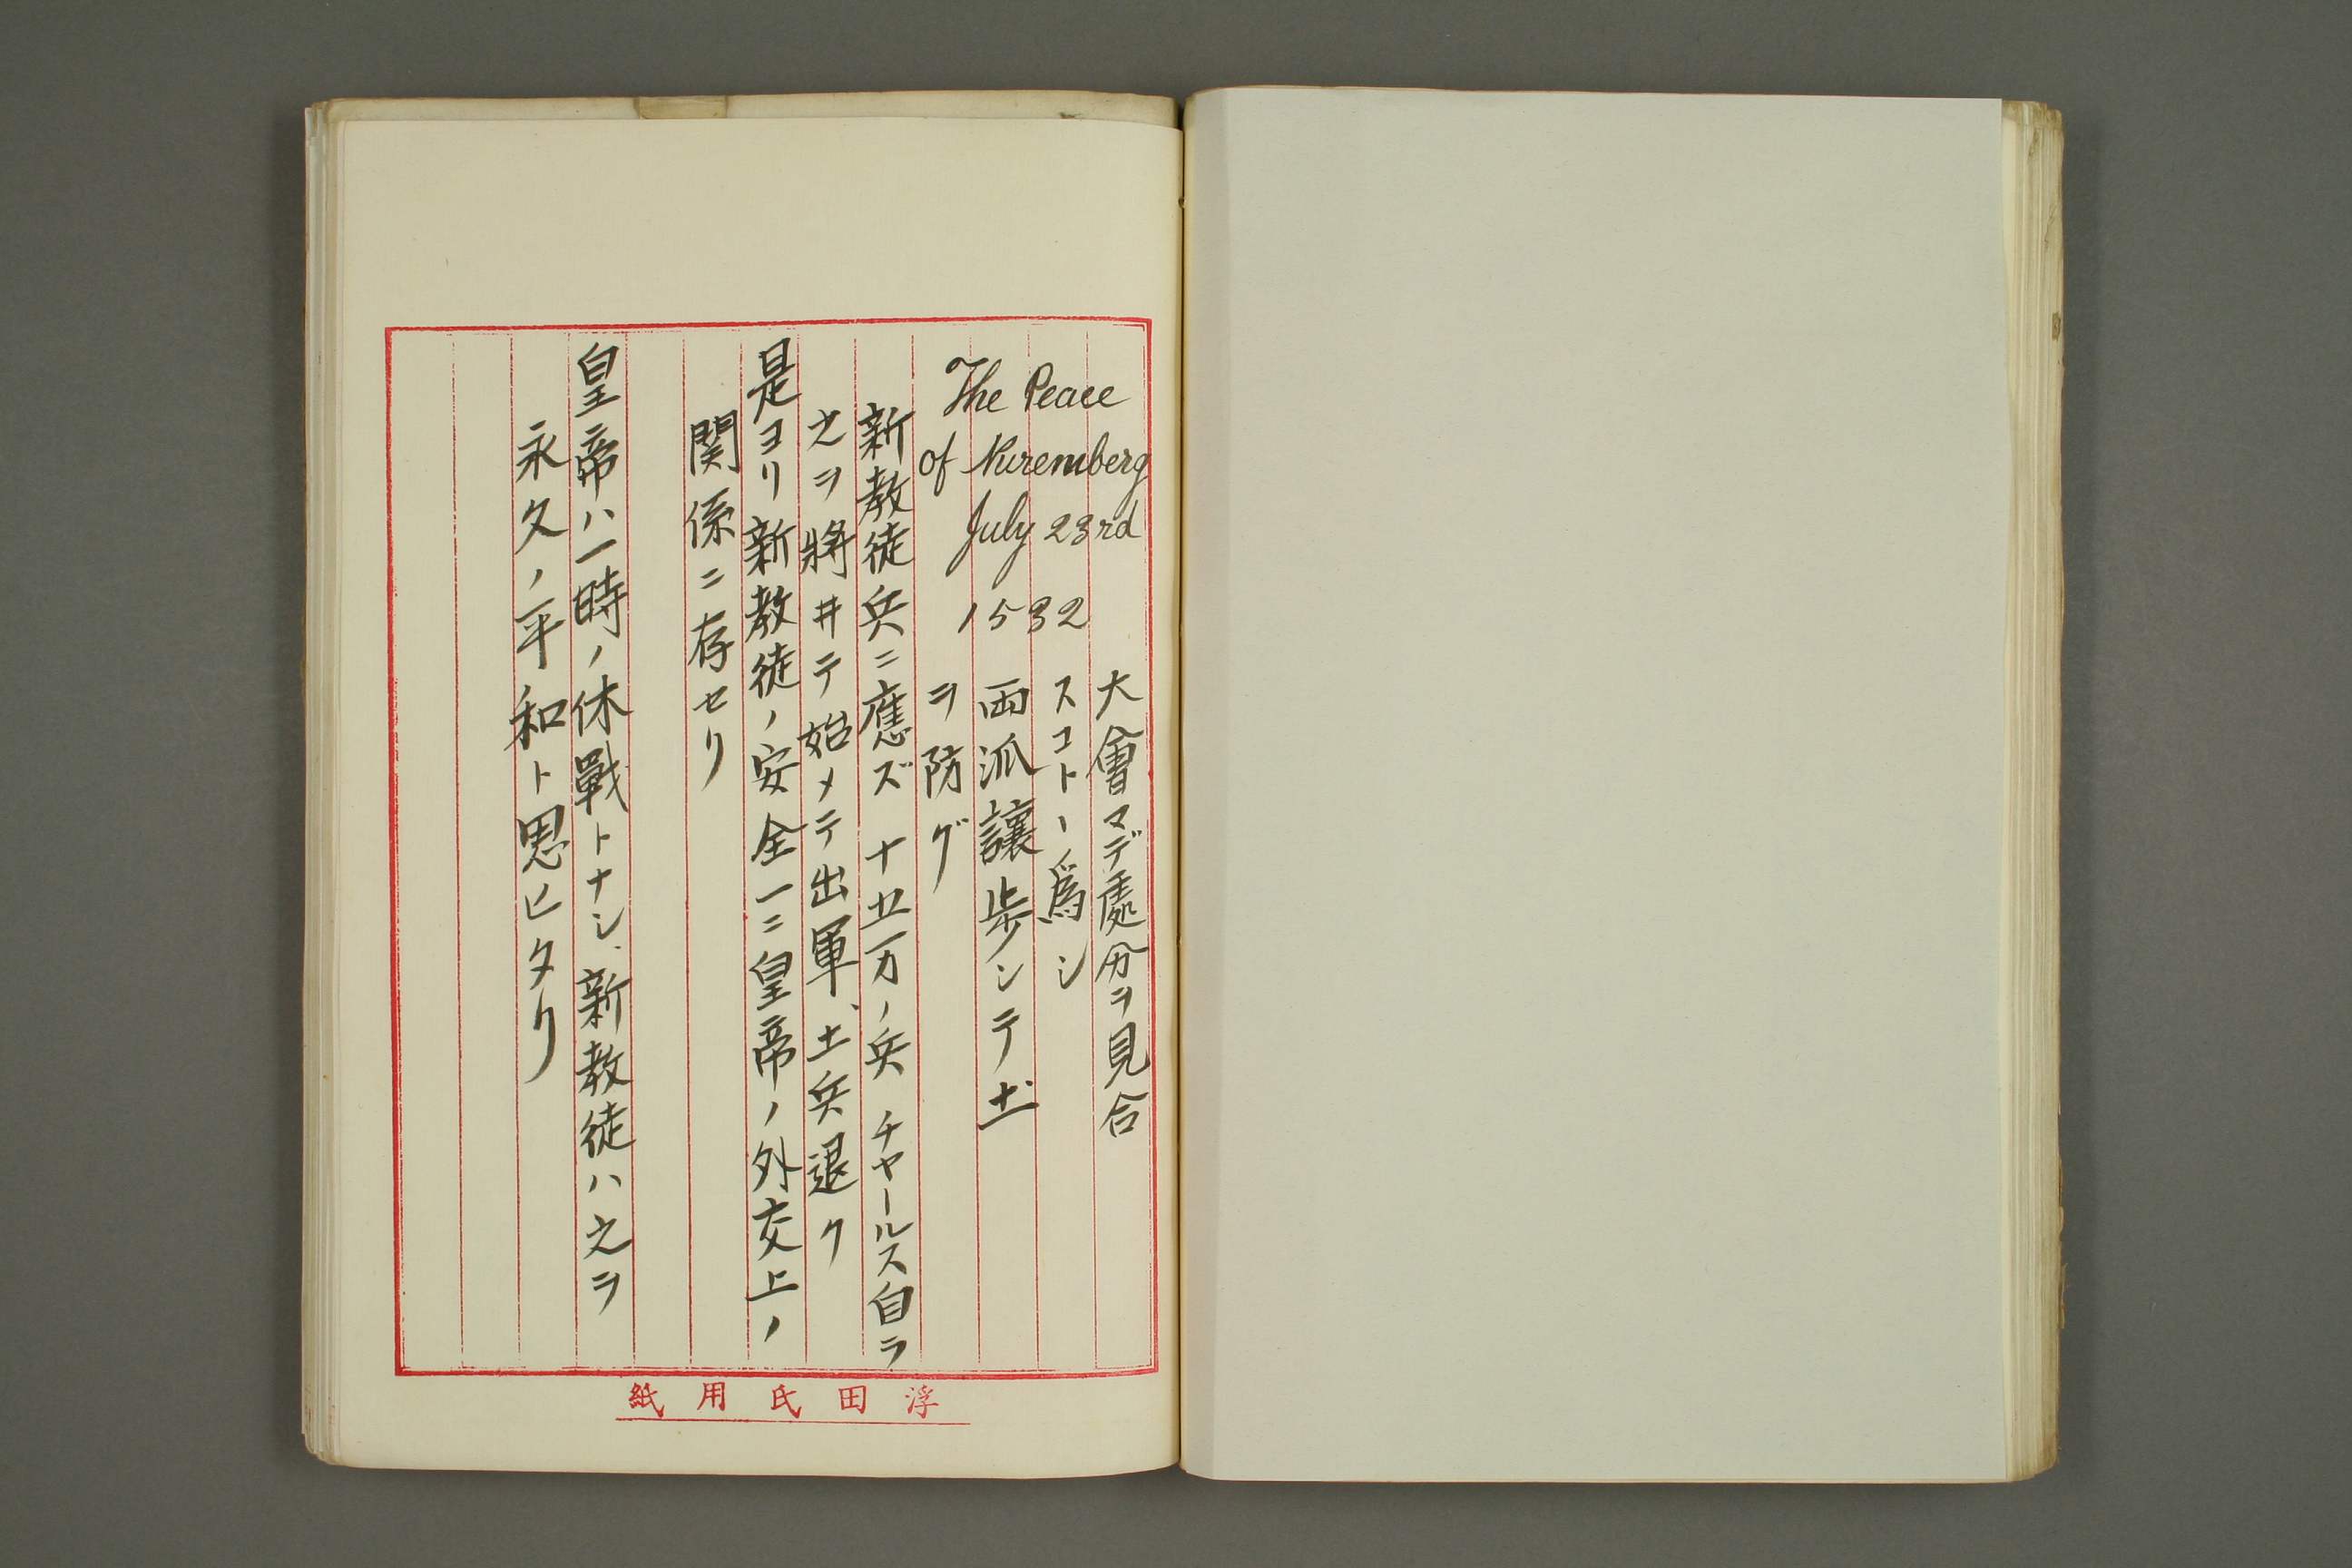 The Peace
of Nuremberg
July 23rd
1532
大會マデ處分ヲ見合
スコトヽ爲シ
両派譲歩シテ土
ヲ防グ
新教徒兵ニ應ズ 十五万ノ兵 チャールス自ラ
之ヲ將井テ始メテ出軍、土兵退ク
是ヨリ新教徒ノ安全一ニ皇帝ノ外交上ノ
関係ニ存セリ
皇帝ハ一時ノ休戰トナシ、新教徒ハ之ヲ
永久ノ平和ト思ヒタリ
浮田氏用紙